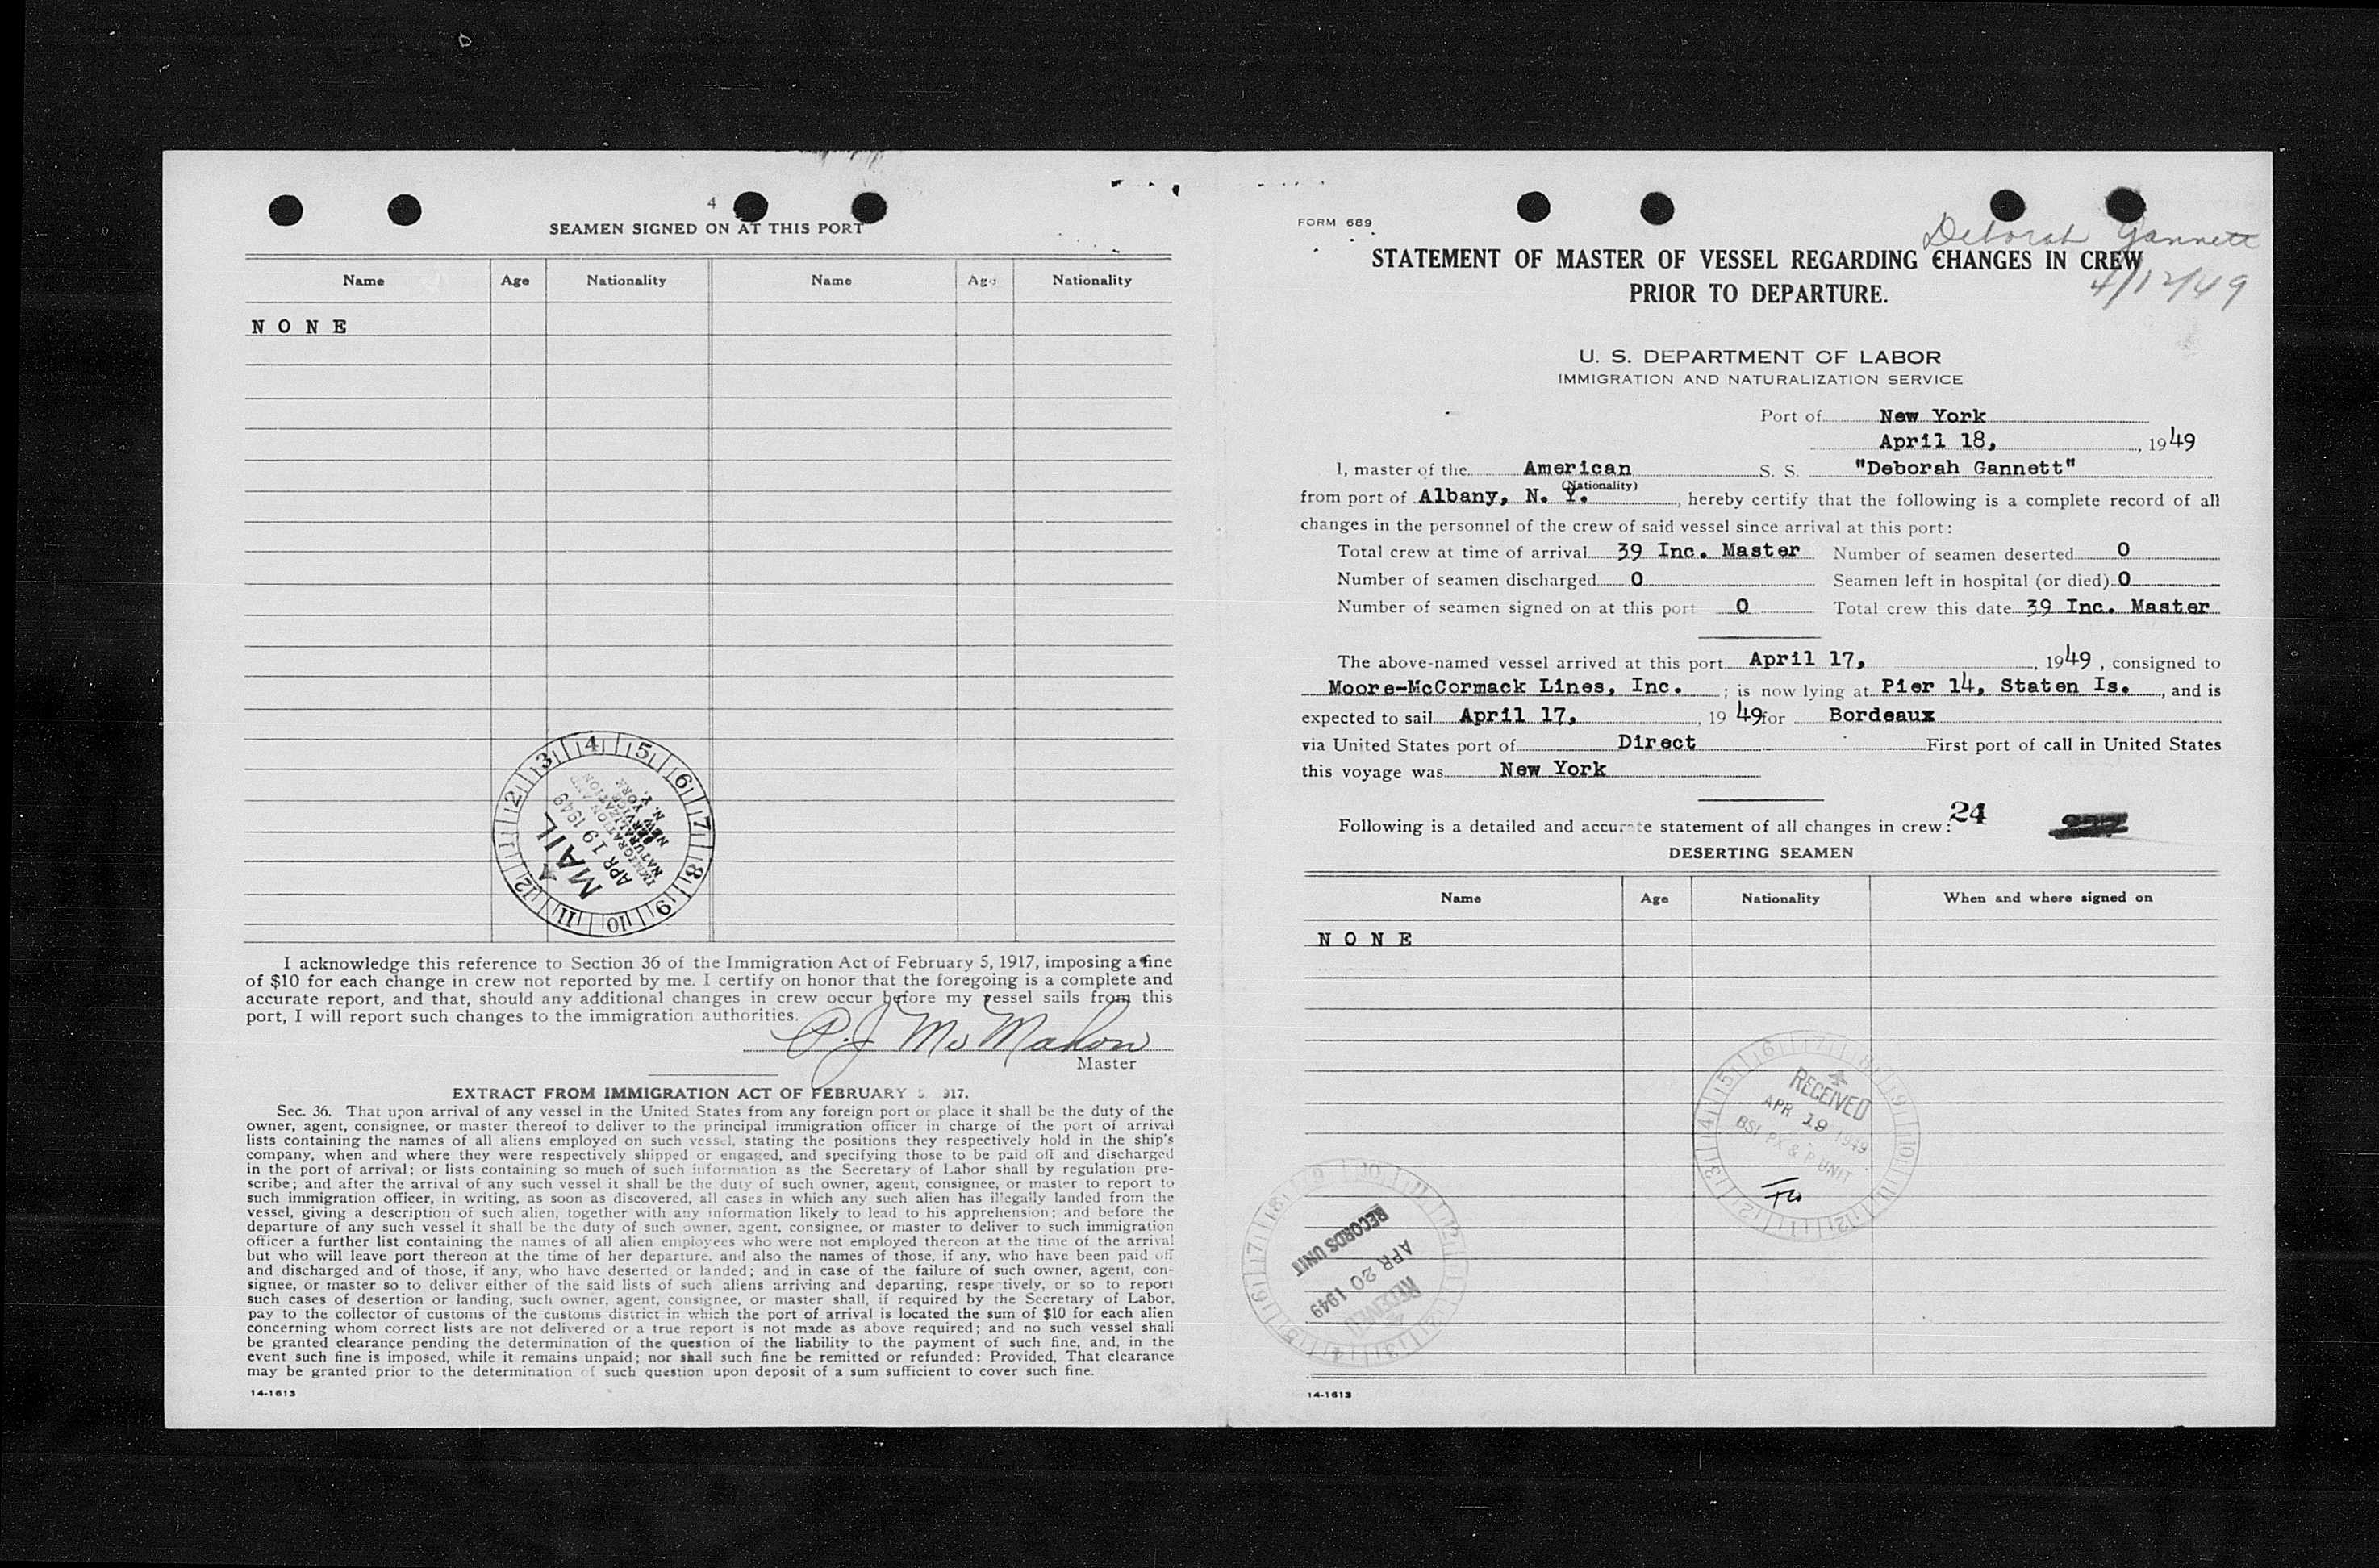 4
SEAMEN SIGNED ON AT THIS PORT
Name Age Nationality Name Age Nationality
N O N E
MAIL
APR 19 1949
IMMIGRATION AND
NATURALIZATION
SERVICE
NEW YORK
N. Y.
I acknowledge this reference to Section 36 of the Immigration Act of February 5, 1917, imposing a fine
of $10 for each change in crew not reported by me. I certify on honor that the foregoing is a complete and
accurate report, and that, should any additional changes in crew occur before my vessel sails from this
port, I will report such changes to the immigration authorities.
P.J. McMahon
Master
EXTRACT FROM IMMIGRATION ACT OF FEBRUARY 5 917.
Sec. 36. That upon arrival of any vessel in the United States from any foreign port or place it shall be the duty of the
owner, agent, consignee, or master thereof to deliver to the principal immigration officer in charge of the port of arrival
lists containing the names of all aliens employed on such vessel, stating the positions they respectively hold in the ship's
company, when and where they were respectively shipped or engaged, and specifying those to be paid off and discharged
in the port of arrival; or lists containing so much of such information as the Secretary of Labor shall by regulation pre-
scribe; and after the arrival of any such vessel it shall be the duty of such owner, agent, consignee, or master to report to
such immigration officer, in writing, as soon as discovered, all cases in which any such alien has illegally landed from the
vessel, giving a description of such alien, together with any information likely to lead to his apprehension; and before the
departure of any such vessel it shall be the duty of such owner, agent, consignee, or master to deliver to such immigration
officer a further list containing the names of all alien employees who were not employed thereon at the time of the arrival
but who will leave port thereon at the time of her departure, and also the names of those, if any, who have been paid off
and discharged and of those, if any, who have deserted or landed; and in case of the failure of such owner, agent, con-
signee, or master so to deliver either of the said lists of such aliens arriving and departing, respectively, or so to report
such cases of desertion or landing, such owner, agent, consignee, or master shall, if required by the Secretary of Labor,
pay to the collector of customs of the customs district in which the port of arrival is located the sum of $10 for each alien
concerning whom correct lists are not delivered or a true report is not made as above required; and no such vessel shall
be granted clearance pending the determination of the question of the liability to the payment of such fine, and, in the
event such fine is imposed, while it remains unpaid; nor shall such fine be remitted or refunded: Provided, That clearance
may be granted prior to the determination of such question upon deposit of a sum sufficient to cover such fine.
14-1613
FORM 689
Deborah Gannett
4/12/49
STATEMENT OF MASTER OF VESSEL REGARDING CHANGES IN CREW
PRIOR TO DEPARTURE.
U. S. DEPARTMENT OF LABOR
IMMIGRATION AND NATURALIZATION SERVICE
Port of New York
April 18, , 1949
I, master of the American S. S. "Deborah Gannett"
(Nationality)
from port of Albany, N. Y. , hereby certify that the following is a complete record of all
changes in the personnel of the crew of said vessel since arrival at this port:
Total crew at time of arrival 39 Inc. Master Number of seamen deserted 0
Number of seamen discharged 0 Seamen left in hospital (or died) 0
Number of seamen signed on at this port 0 Total crew this date 39 Inc. Master
The above-named vessel arrived at this port April 17, , 1949 , consigned to
Moore-McCormack Lines, Inc. ; is now lying at Pier 14, Staten Is. , and is
expected to sail April 17, , 19 49 for Bordeaux
via United States port of Direct First port of call in United States
this voyage was New York
Following is a detailed and accurate statement of all changes in crew: 24
DESERTING SEAMEN
Name Age Nationality When and where signed on
N O N E
RECEIVED
APR 19 1949
BSI PX & P UNIT
RECORDS UNIT
APR 20 1949
RECEIVED
14-1613